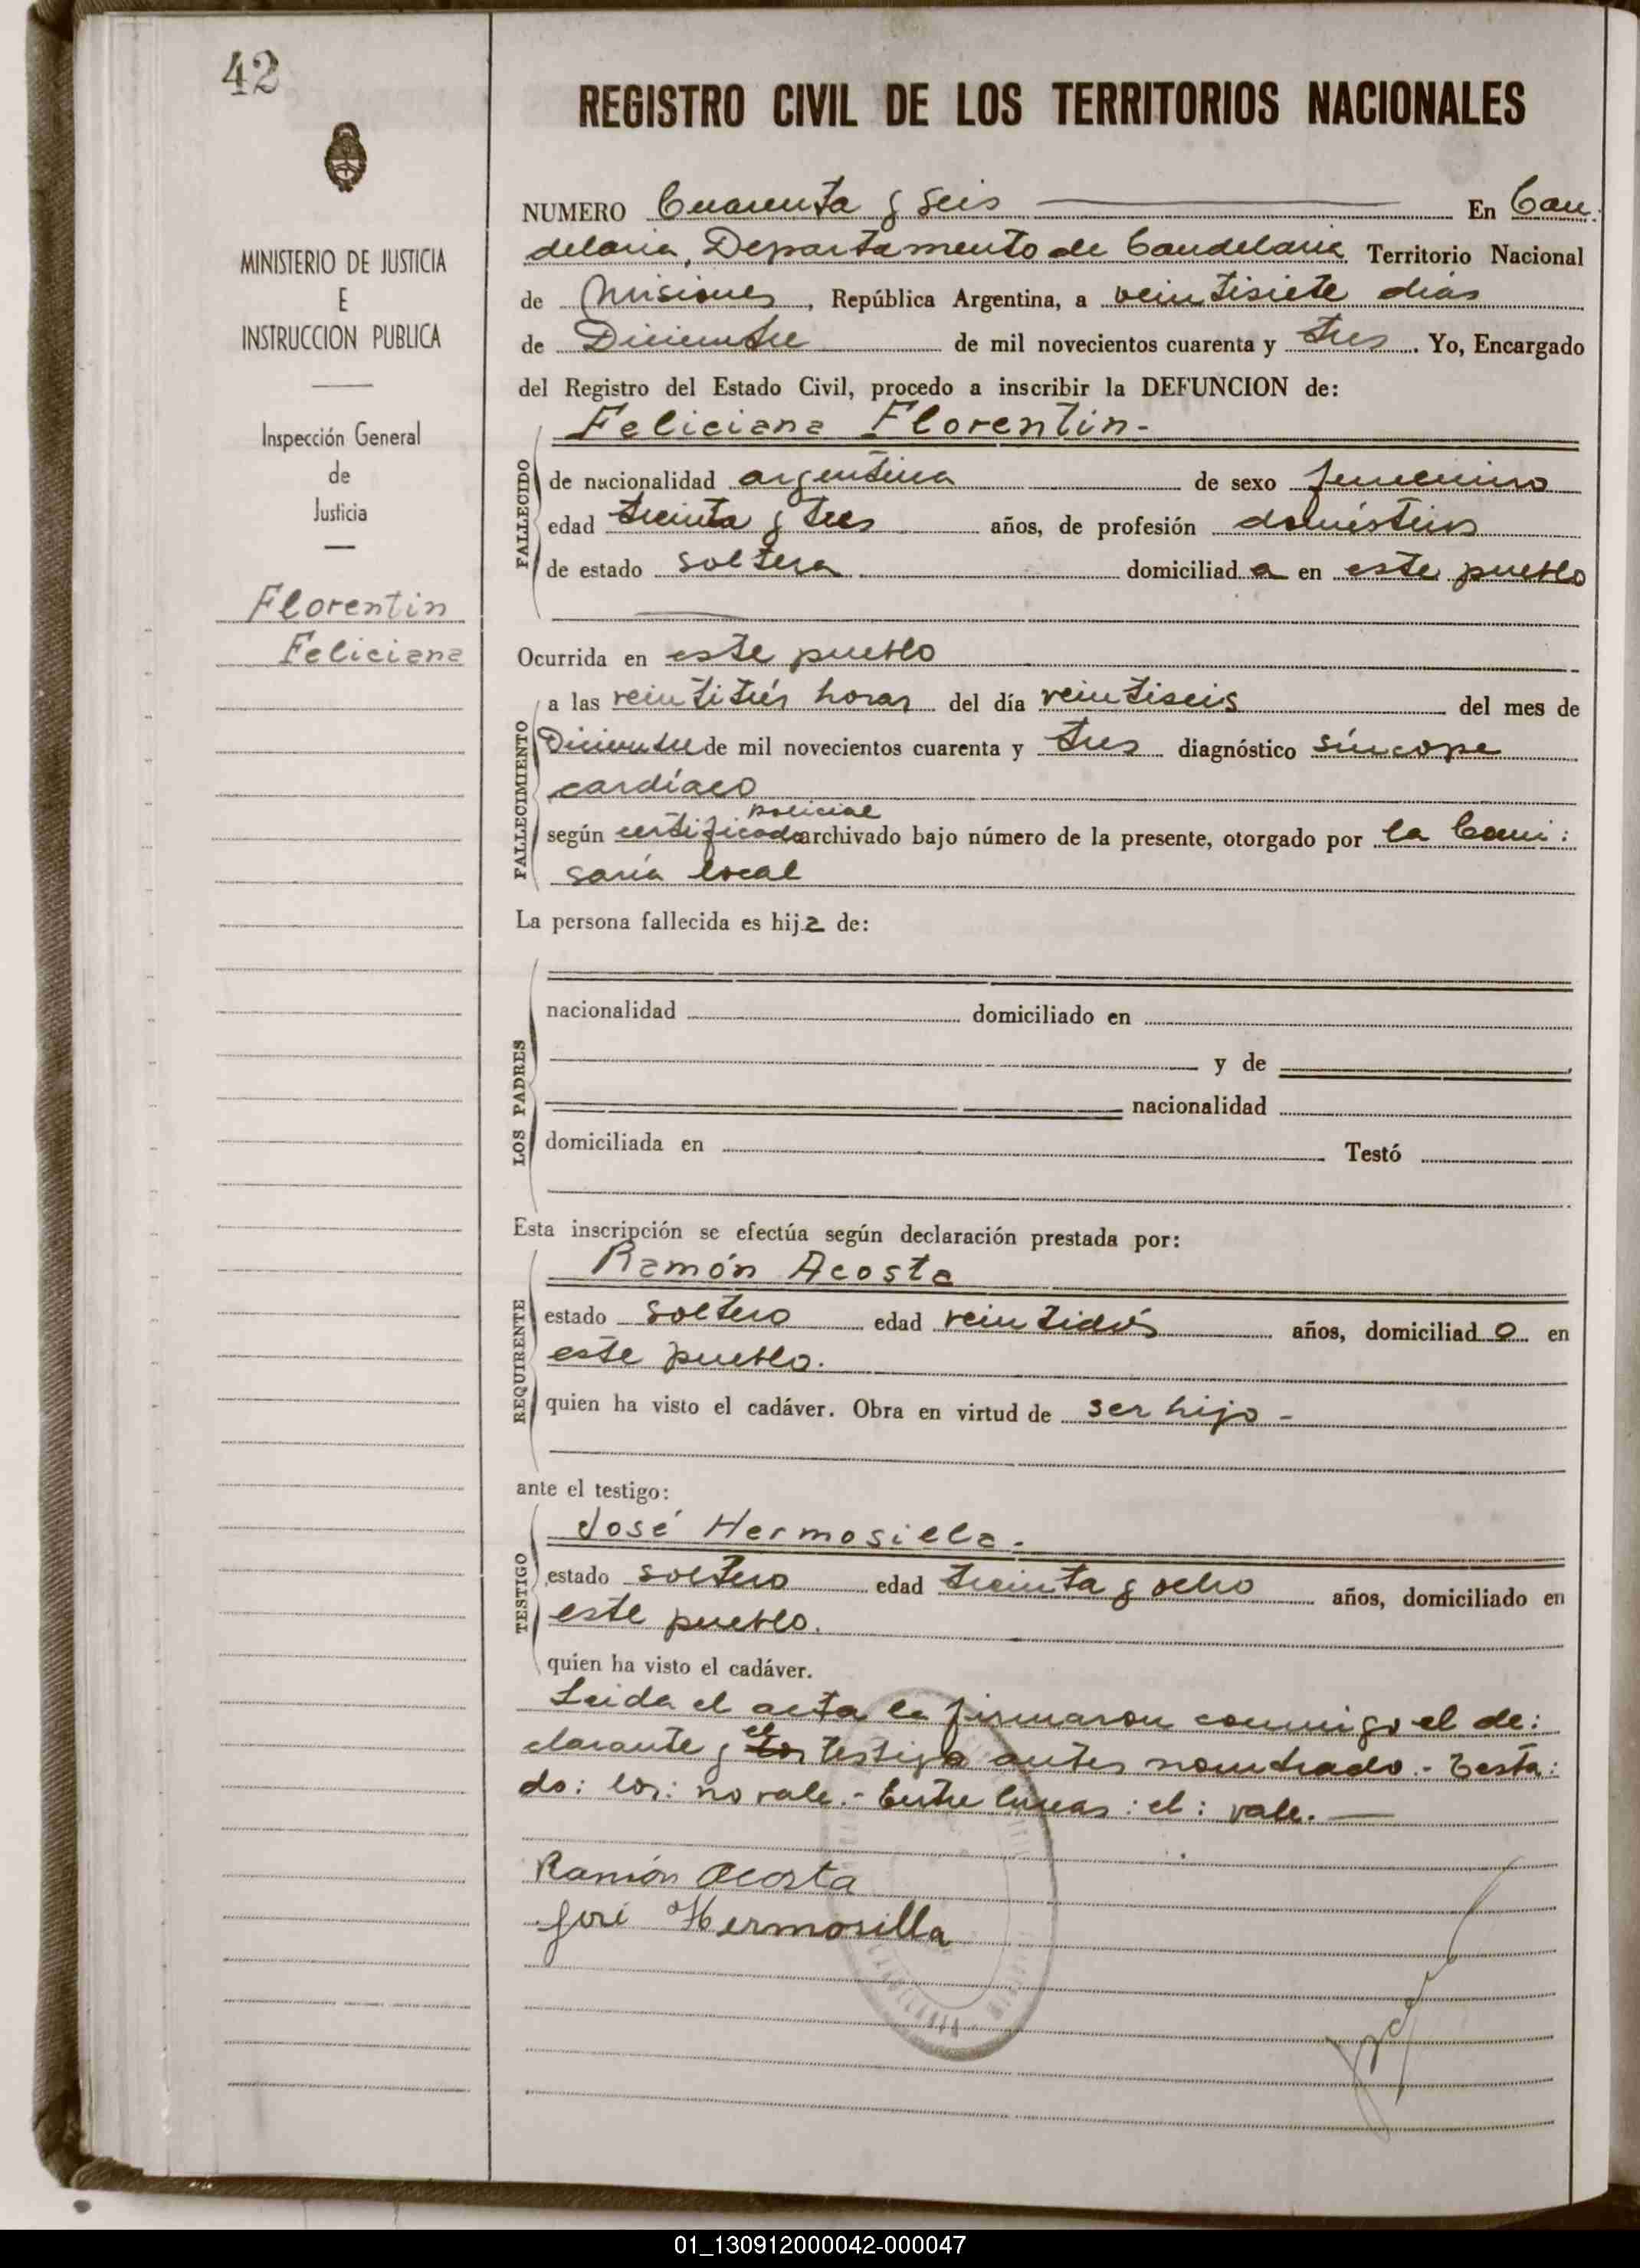 42
MINISTERIO DE JUSTICIA
E
INSTRUCCION PUBLICA
Inspección General
de
Justicia
Florentin
Feliciana
REGISTRO CIVIL DE LOS TERRITORIOS NACIONALES
NUMERO Cuarenta y seis En Can:
delaria, Departamento de Candelaria Territorio Nacional
de Misiones, República Argentina, a veintisiete dias
de Diciembre de mil novecientos cuarenta y tres. Yo, Encargado
del Registro del Estado Civil, procedo a inscribir la DEFUNCION de:
Feliciana Florentin-
FALLECIDO
de nacionalidad argentina de sexo femenino
edad treinta y tres años, de profesión domésticos
de estado soltera domiciliada en este pueblo
Ocurrida en este pueblo
FALLECIMIENTO
a las veintitrés horas del día veintiseis del mes de
Diciembre de mil novecientos cuarenta y tres diagnóstico síncope
cardíaco
policial
según certificado archivado bajo número de la presente, otorgado por la Comi:
saría local
La persona fallecida es hija de:
LOS PADRES
nacionalidad domiciliado en
y de
nacionalidad
domiciliada en Testó
Esta inscripción se efectúa según declaración prestada por:
Ramón Acosta
REQUIRENTE
estado soltero edad veintidós años, domiciliado en
este pueblo.
quien ha visto el cadáver. Obra en virtud de ser hijo-
ante el testigo:
José Hermosilla.
TESTIGO
estado soltero edad treinta y ocho años, domiciliado en
este pueblo.
quien ha visto el cadáver.
Leida el acta la firmaron conmigo el de:
el
clarante y los testigo antes nombrado.- Testa:
do: los: no vale.- Entre lineas: el: vale.—
Ramón Acosta
José Hermosilla
01_130912000042-000047